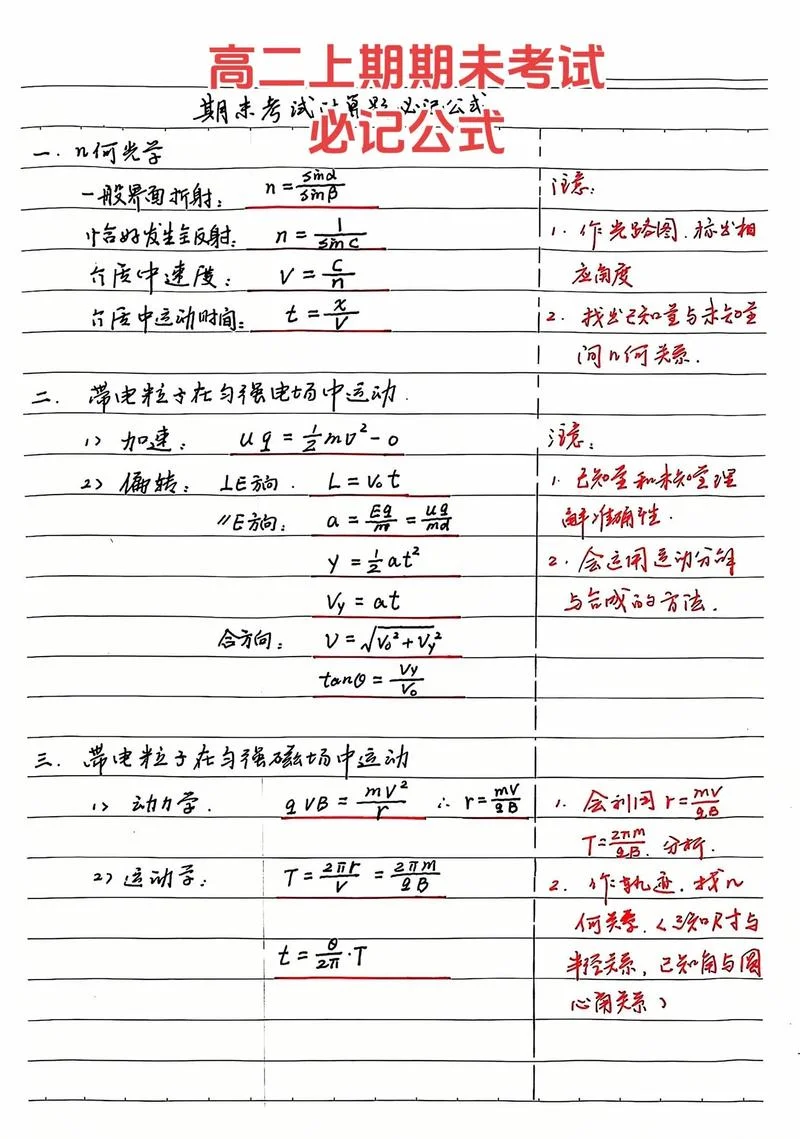 高二上期期末考试
必记公式
期末考试计算题必记公式
一. 几何光学
一般界面折射: n=sinα/sinβ
恰好发生全反射: n=1/sinC
介质中速度: v=c/n
介质中运动时间: t=x/v
注意:
1. 作光路图. 标出相
应角度
2. 找出已知量与未知量
间几何关系.
二. 带电粒子在匀强电场中运动.
1) 加速: uq=½mv²-0
2) 偏转: ⊥E方向. L=v₀t
∥E方向: a=Eq/m=uq/md
y=½at²
Vy=at
合方向: v=√(V₀²+Vy²)
tanθ=Vy/V₀
注意:
1. 已知量和未知量理
解准确性.
2. 会运用运动分解
与合成的方法.
三. 带电粒子在匀强磁场中运动
1) 动力学. qVB=mV²/r ∴ r=mV/qB
2) 运动学: T=2πr/V=2πm/qB
t=θ/2π·T
1. 会利用 r=mV/qB
T=2πm/qB. 分析.
2. 作轨迹. 找几
何关系.(已知尺寸与
半径关系, 已知角与圆
心角关系)